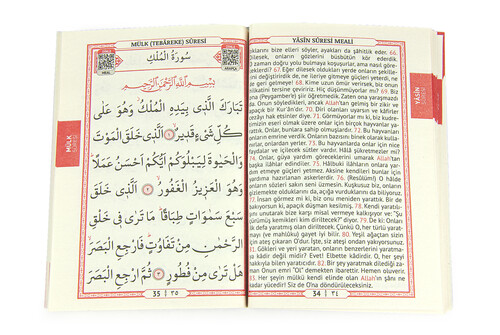 MÜLK (TEBÂREKE) SÛRESİ
سُورَةُ الْمُلْكِ
بِسْمِ اللّٰهِ الرَّحْمٰنِ الرَّحِيمِ
تَبَارَكَ الَّذِى بِيَدِهِ الْمُلْكُ وَهُوَ عَلٰى
كُلِّ شَىْءٍ قَدِيرٌ ١ اَلَّذِى خَلَقَ الْمَوْتَ
وَالْحَيٰوةَ لِيَبْلُوَكُمْ اَيُّكُمْ اَحْسَنُ عَمَلًا
وَهُوَ الْعَزِيزُ الْغَفُورُ ٢ اَلَّذِى خَلَقَ
سَبْعَ سَمٰوَاتٍ طِبَاقًا مَا تَرٰى فِى خَلْقِ
الرَّحْمٰنِ مِنْ تَفَاوُتٍ فَارْجِعِ الْبَصَرَ
هَلْ تَرٰى مِنْ فُطُورٍ ٣ ثُمَّ ارْجِعِ الْبَصَرَ
35 ٣٥
MÜLK
SÛRESİ
YÂSÎN SÛRESİ MEALİ
oklarını bize elleri söyler, ayakları da şâhitlik eder. 66.
O zaman doğru yolu bulmaya koşuşurlar, ama nasıl göre-
ceklerdi? 67. Eğer dilesek oldukları yerde onların şekille-
rini değiştirirdik de, ne ileriye gitmeye güçleri yeterdi, ne
de geri gelmeye! 68. Kime uzun ömür verirsek, biz onun
hilkatini tersine çeviririz. Hiç düşünmüyorlar mı? 69. Biz
ona (Peygamber'e) şiir öğretmedik. Zaten ona yaraşmazdı
da. Onun söyledikleri, ancak Allah'tan gelmiş bir zikir ve
apaçık bir Kur'ân'dır. 70. Diri olanları uyarsın ve kâfirler
azabı hak etsinler diye. 71. Görmüyorlar mı ki, biz kudre-
timizin eseri olmak üzere onlar için birçok hayvanlar ya-
rattık. Onlar, bunlara sahip olmuşlardır. 72. Bu hayvanları
onların emrine verdik. Onların bazısını binek olarak kulla-
nırlar, bazısını da yerler. 73. Bu hayvanlarda onlar için nice
faydalar ve içilecek sütler vardır. Hâlâ şükretmezler mi?
74. Onlar, güya yardım göreceklerini umarak Allah'tan
başka ilâhlar edindiler. 75. Hâlbuki ilâhların onlara yardım
etmeye güçleri yetmez. Aksine kendileri bunlar için
yardıma hazırlanan askerlerdir. 76. (Resûlüm!) O hâlde
onların sözleri sakın seni üzmesin. Kuşkusuz biz, onların
gizlemekte olduklarını da, açığa vurduklarını da biliyoruz.
77. İnsan görmez mi ki, biz onu meniden yarattık. Bir de
bakıyorsun ki, apaçık düşman kesilmiş. 78. Kendi yaratılı-
şını unutarak bize karşı misal vermeye kalkışıyor ve: "Şu
çürümüş kemikleri kim diriltecek?" diyor. 79. De ki: Onları
ilk defa yaratmış olan diriltecek. Çünkü O, her türlü yarat-
mayı (ve mahlûku) gayet iyi bilir. 80. Yeşil ağaçtan sizin
için ateş çıkaran O'dur. İşte, siz ateşi ondan yakıyorsunuz.
81. Gökleri ve yeri yaratan, onların benzerlerini yaratma-
ya kâdir değil midir? Evet! Elbette kâdirdir. O, her şeyi
hakkıyla bilen yaratıcıdır. 82. Bir şey yaratmak dilediği za-
man Onun emri "Ol" demekten ibarettir. Hemen oluverir.
83. Her şeyin mülkü kendi elinde olan Allah'ın şânı ne ka-
dar yücedir! Siz de O'na döndürüleceksiniz.
34 ٣٤
YÂSÎN
SÛRESİ